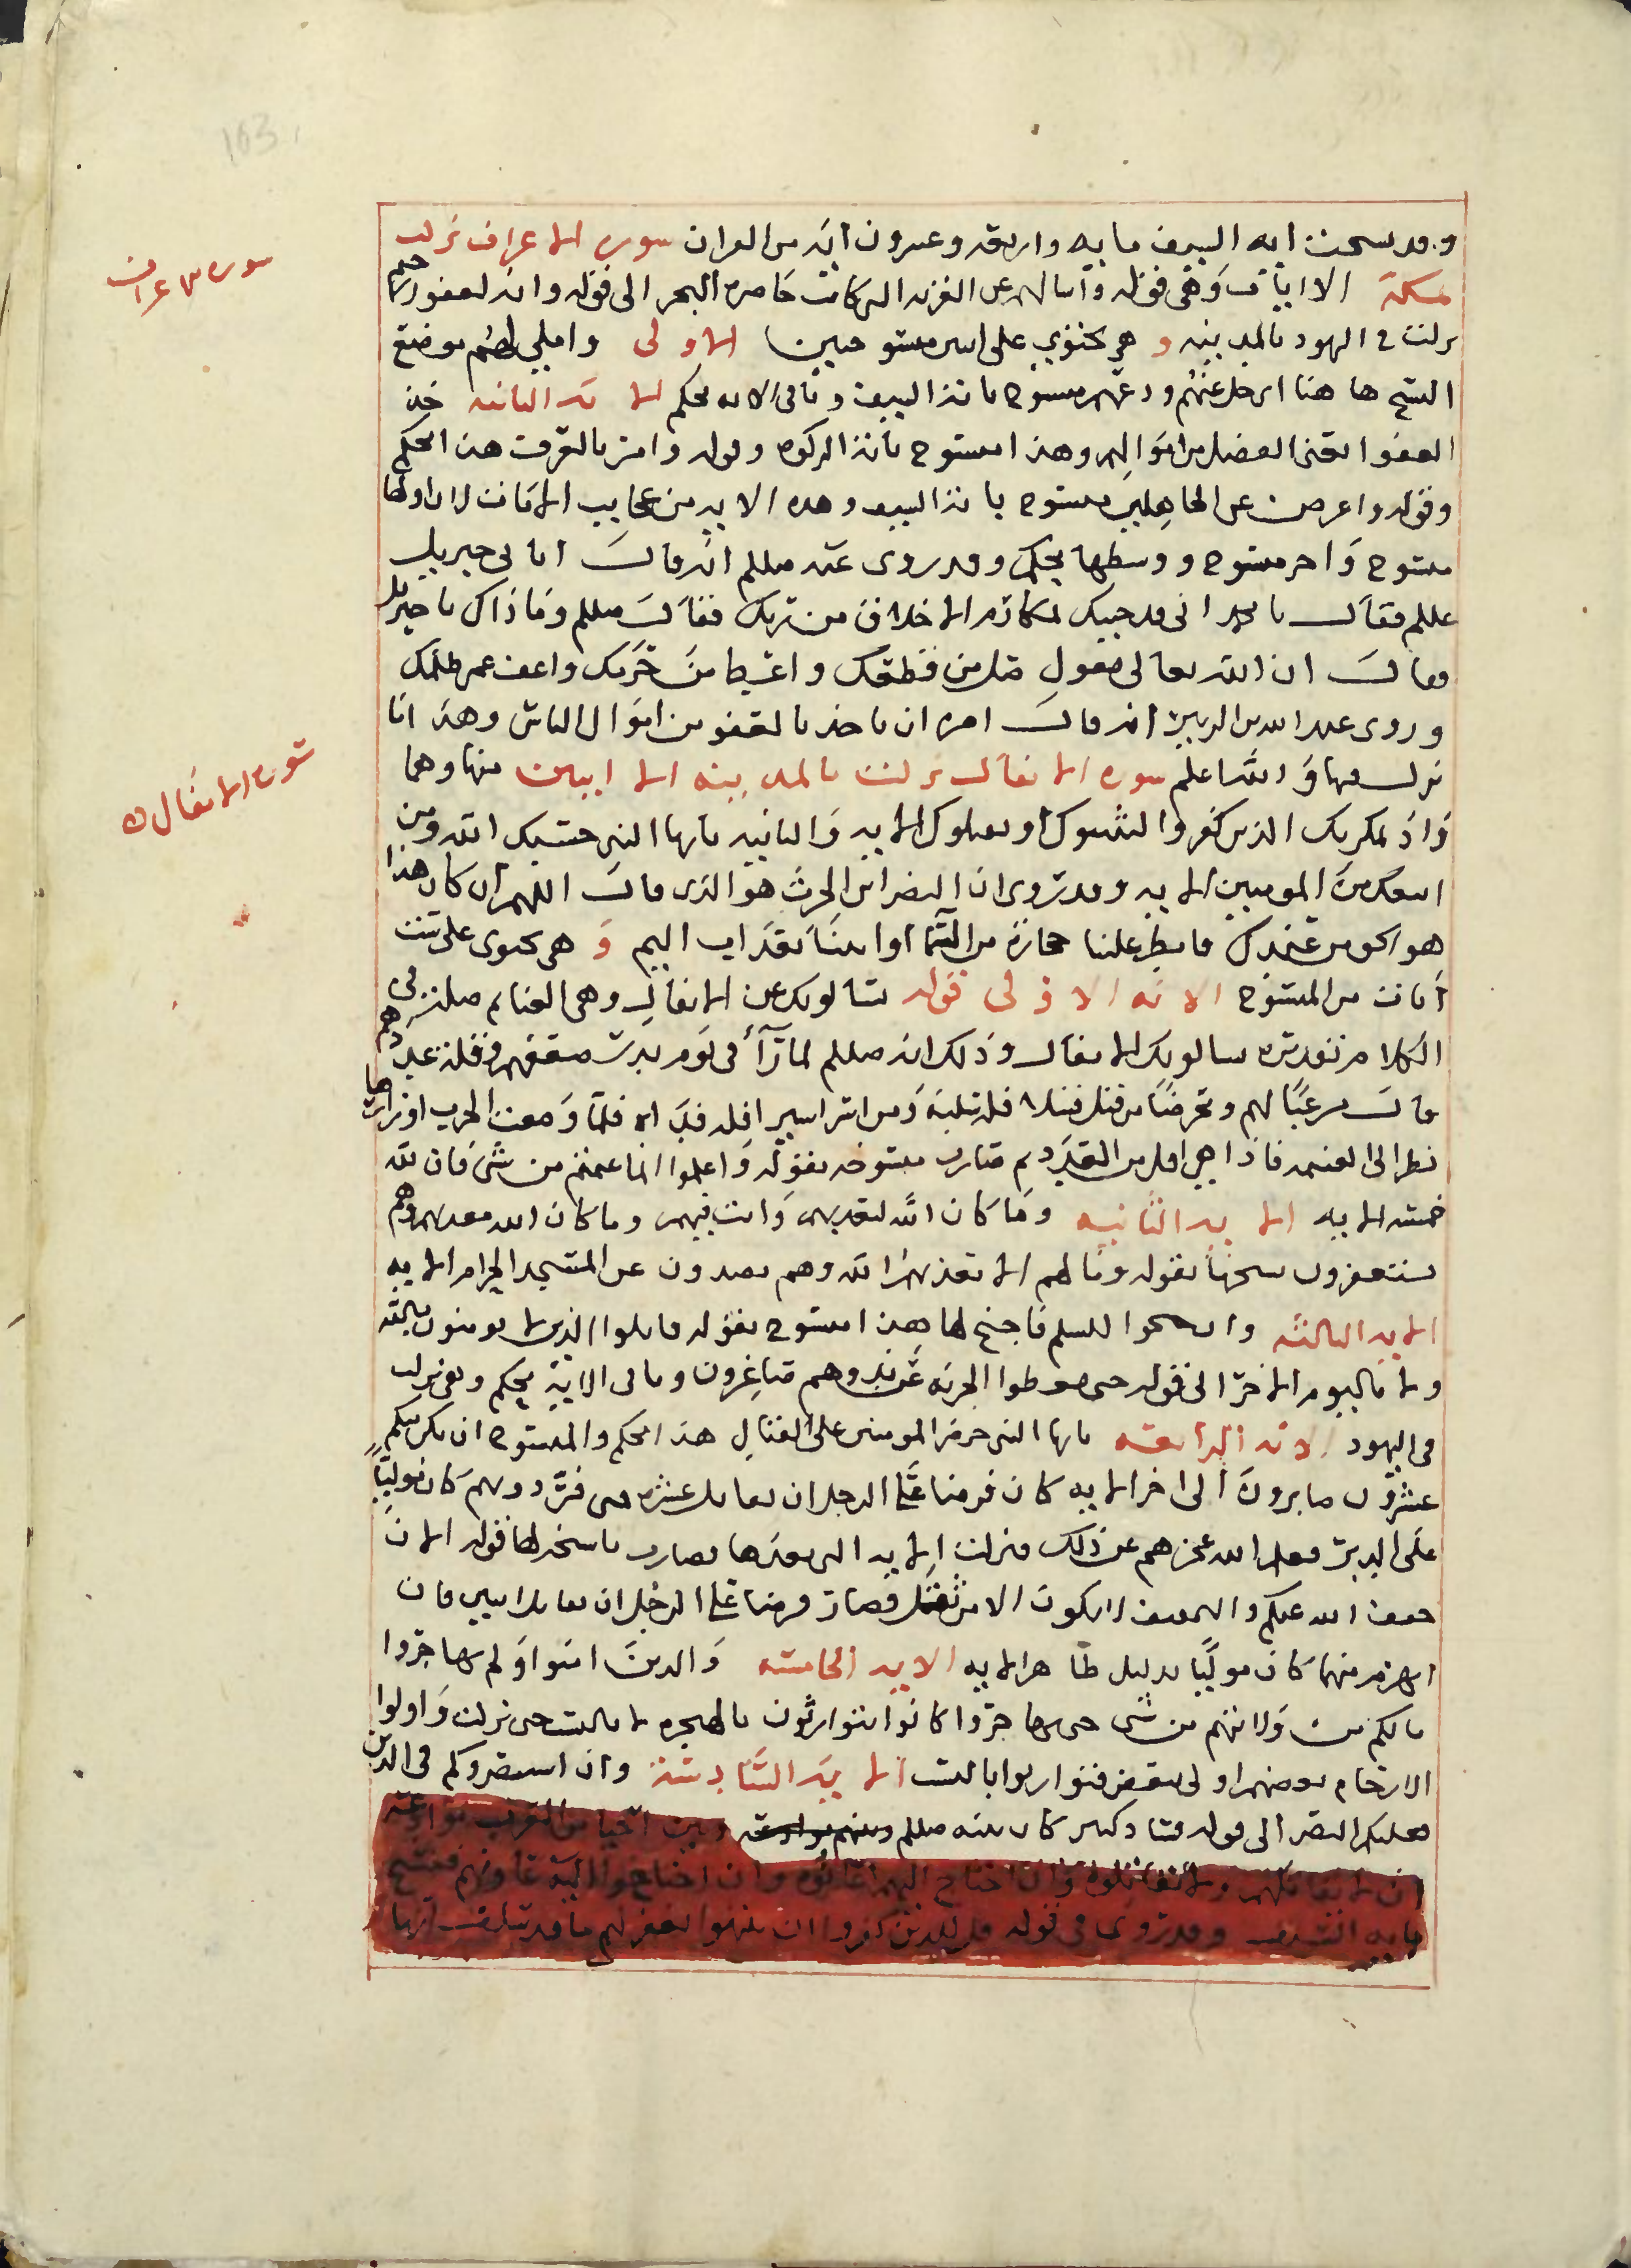 163
وقد نسخت ايه السيف مايه واربعه وعشرون ايه من القران سوره الاعراف نزلت
بمكة الا ايات وهي قوله واسالهم عن القريه التي كانت حاضره البحر الى قوله وانه لغفور رحيم
نزلت في اليهود بالمدينه وهي تحتوي على ايتين منسوختين الاولى واملي لهم موضع
النسخ ها هنا اي خل عنهم ودعهم منسوخ بايه السيف وباقي الايه محكم الايه الثانيه خذ
العفو يعني الفضل من اموالهم وهذا منسوخ بايه الزكوه وقوله وامر بالعرف هذا محكم
وقوله واعرض عن الجاهلين منسوخ بايه السيف وهذه الايه من عجايب الايات لان اولها
منسوخ واخر منسوخ ووسطها محكم وقد روى عنه صللم انه قال اتاني جبريل
عللم فقال يا محمد اني قد جيتك بمكارم الاخلاق من ربك فقال صللم وما ذاك يا جبريل
فقال ان الله تعالى يقول صل من قطعك واعط من حرمك واعف عمن ظلمك
وروى عبد الله بن الزبير انه قال امره ان ياخذ بالعفو من اموال الناس وهذا انما
نزلت فيها والله اعلم سوره الانفال نزلت بالمدينه الا ايتين منها وهما
واذ يمكر بك الذين كفروا ليثبتوك او يقتلوك الايه والثانيه يايها النبي حسبك الله ومن
اتبعك من المومنين الايه وقد روى ان النضر ابن الحرث هو الذي قال اللهم ان كان هذا
هو الحق من عندك فامطر علينا حجارة من السما او ايتنا بعذاب اليم وهي تحتوى على ست
ايات من المنسوخ الايه الاولى قوله يسالونك عن الانفال وهي الغنايم صله في
الكلام تقديره يسالونك الانفال وذلك انه صللم لما راى في يوم بدر ضعفهم وقلة عددهم
قال مرغبا لهم ومحرضا من قتل قتيلا فله سلبه ومن اسر اسيرا فله فداه فلما وضعت الحرب اوزارها
نظر الى الغنيمه فاذا هي اقل من العدد ثم صارت منسوخه بقوله واعلموا انما غنمتم من شي فان لله
خمسه الايه الايه الثانيه وما كان الله ليعذبهم وانت فيهم وما كان الله معذبهم وهم
يستغفرون نسخها بقوله وما لهم الا يعذبهم الله وهم يصدون عن المسجد الحرام الايه
الايه الثالثه وان جنحوا للسلم فاجنح لها هذا منسوخ بقوله قاتلوا الذين لا يومنون بالله
ولا باليوم الاخر الى قوله حتى يعطوا الجزيه عن يد وهم صاغرون وباقي الايه محكم وهي نزلت
في اليهود الايه الرابعه يايها النبي حرض المومنين على القتال هذا محكم والمنسوخ ان يكن منكم
عشرون صابرون الى اخر الايه كان فرضا على الرجل ان يقاتل عشره متى فر دونهم كان موليا
على الدبر فعلم الله عجزهم عن ذلك فنزلت الايه التي بعدها فصارت ناسخه لها قوله الان
خفف الله عنكم والتخفيف لا يكون الا من ثقل فصار فرضا على الرجل ان يقاتل اثنين فان
انهزم منهما كان موليا بدليل ظاهر الايه الايه الخامسه والذين امنوا ولم يهاجروا
مالكم من ولايتهم من شي حتى يهاجروا كانوا يتوارثون بالهجره لا بالنسب حتى نزلت واولوا
الارحام بعضهم اولى ببعض فتوارثوا بالنسب الايه السادسه وان استنصروكم في الدين
فعليكم النصر الى قوله ميثاق كان بينه صللم وبين احيا من العرب موادعه
ان لا يقاتلهم ولا يقاتلوه وان احتاج اليهم اعانوه وان احتاجوا اليه عاونهم فنسخ
بايه السيف وقد روى في قوله قل للذين كفروا ان ينتهوا يغفر لهم ما قد سلف انها
سوره الاعراف
سوره الانفال